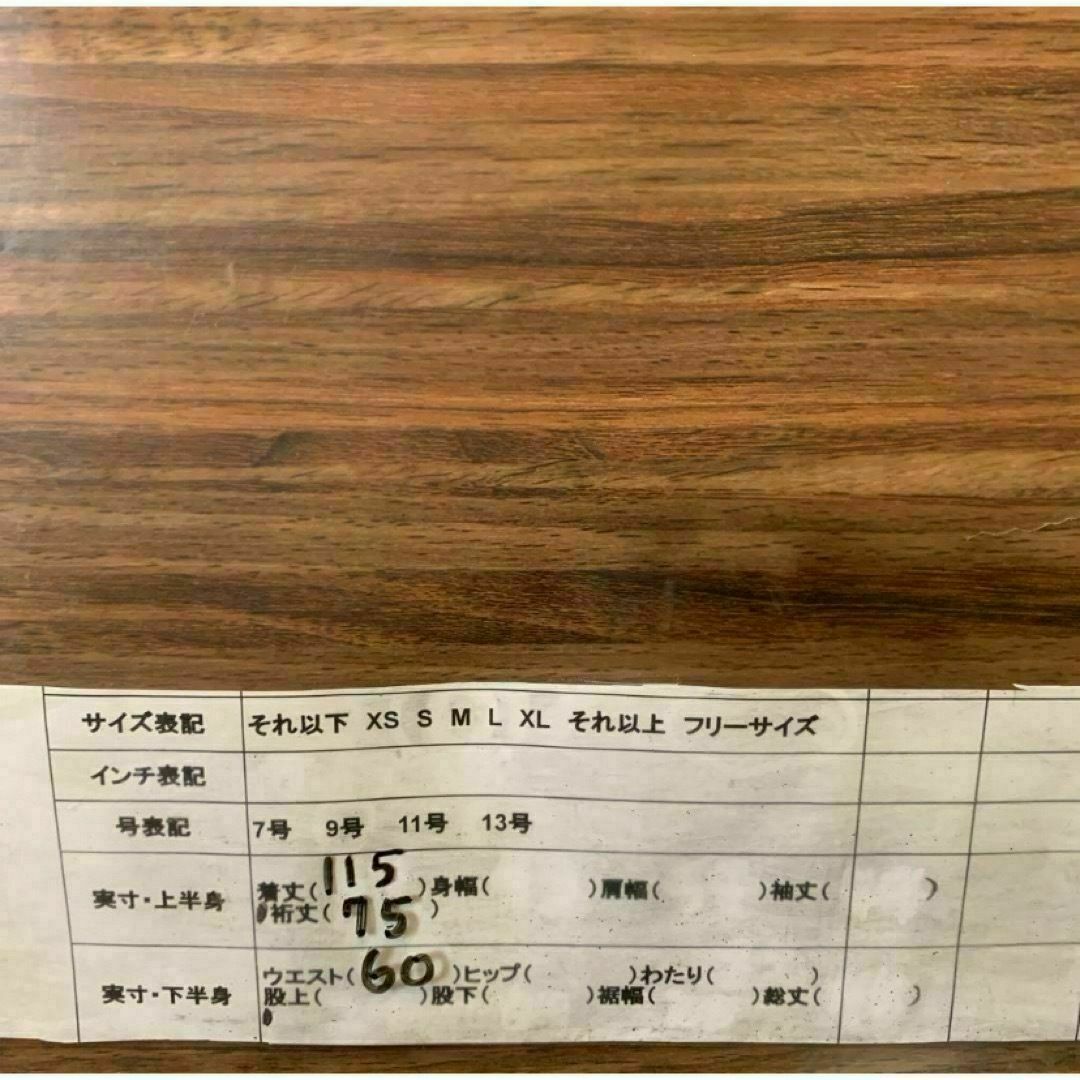 サイズ表記 それ以下 XS S M L XL それ以上 フリーサイズ
インチ表記
号表記 7号 9号 11号 13号
実寸・上半身 着丈(115)身幅( )肩幅( )袖丈( )
裄丈(75)
実寸・下半身 ウエスト(60)ヒップ( )わたり( )
股上( )股下( )裾幅( )総丈( )